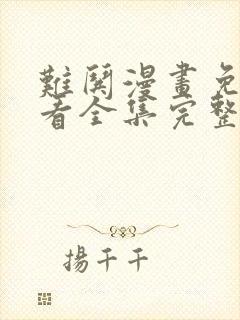 難鬨漫畫免
看全集完整
揚千千